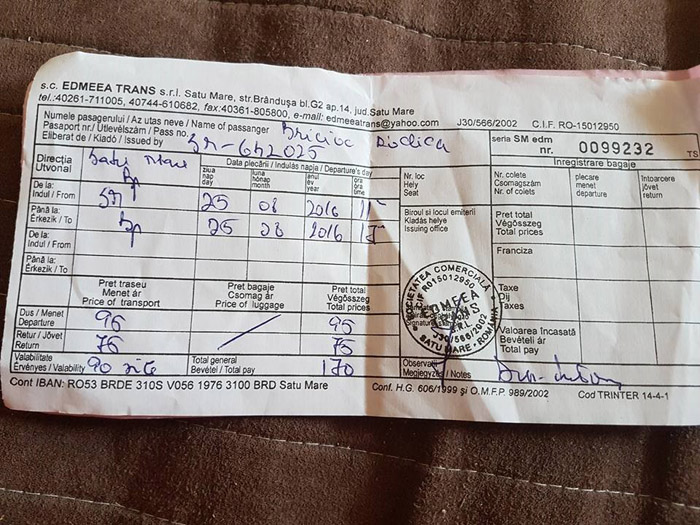 s.c. EDMEEA TRANS s.r.l. Satu Mare, str.Brânduşa bl.G2 ap.14, jud.Satu Mare
tel.:40261-711005, 40744-610682, fax:40361-805800, e-mail: edmeeatrans@yahoo.com J30/566/2002 C.I.F. RO-15012950
Numele pasagerului / Az utas neve / Name of passenger
Pasaport nr./ Útlevélszám / Pass no. SM-642025
Eliberat de / Kiadó / Issued by
seria SM edm
nr. 0099232 TS
Direcţia
Utvonal
Satu Mare
Bp
Data plecării / Indulás napja / Departure's day
ziua nap day
luna hónap month
anul év year
ora óra time
Nr. loc
Hely
Seat
Inregistrare bagaje
Nr. colete
Csomagszám
Nr. of colets
plecare
menet
departure
întoarcere
jövet
return
De la:
Indul / From SM 25 08 2016
Până la:
Érkezik / To Bp 25 08 2016
De la:
Indul / From
Până la:
Érkezik / To
Biroul si locul emiterii
Kiadás helye
Issuing office
Pret total
Végösszeg
Total prices
Franciza
Taxe
Díj
Taxes
Valoarea încasată
Bevételi ár
Total pay
Pret traseu
Menet ár
Price of transport
Pret bagaje
Csomag ár
Price of luggage
Pret total
Végösszeg
Total prices
Dus / Menet
Departure 95 95
Retur / Jövet
Return 75 75
Valabilitate
Érvényes / Valability 90 zile
Total general
Bevétel / Total pay 170
SOCIETATEA COMERCIALĂ
CIF RO15012950
EDMEEA
TRANS
S.R.L.
J30/566/2002
SATU MARE - ROMÂNIA
Observaţii
Megjegyzés / Notes
Cont IBAN: RO53 BRDE 310S V056 1976 3100 BRD Satu Mare
Conf. H.G. 606/1999 şi O.M.F.P. 989/2002 Cod TRINTER 14-4-1